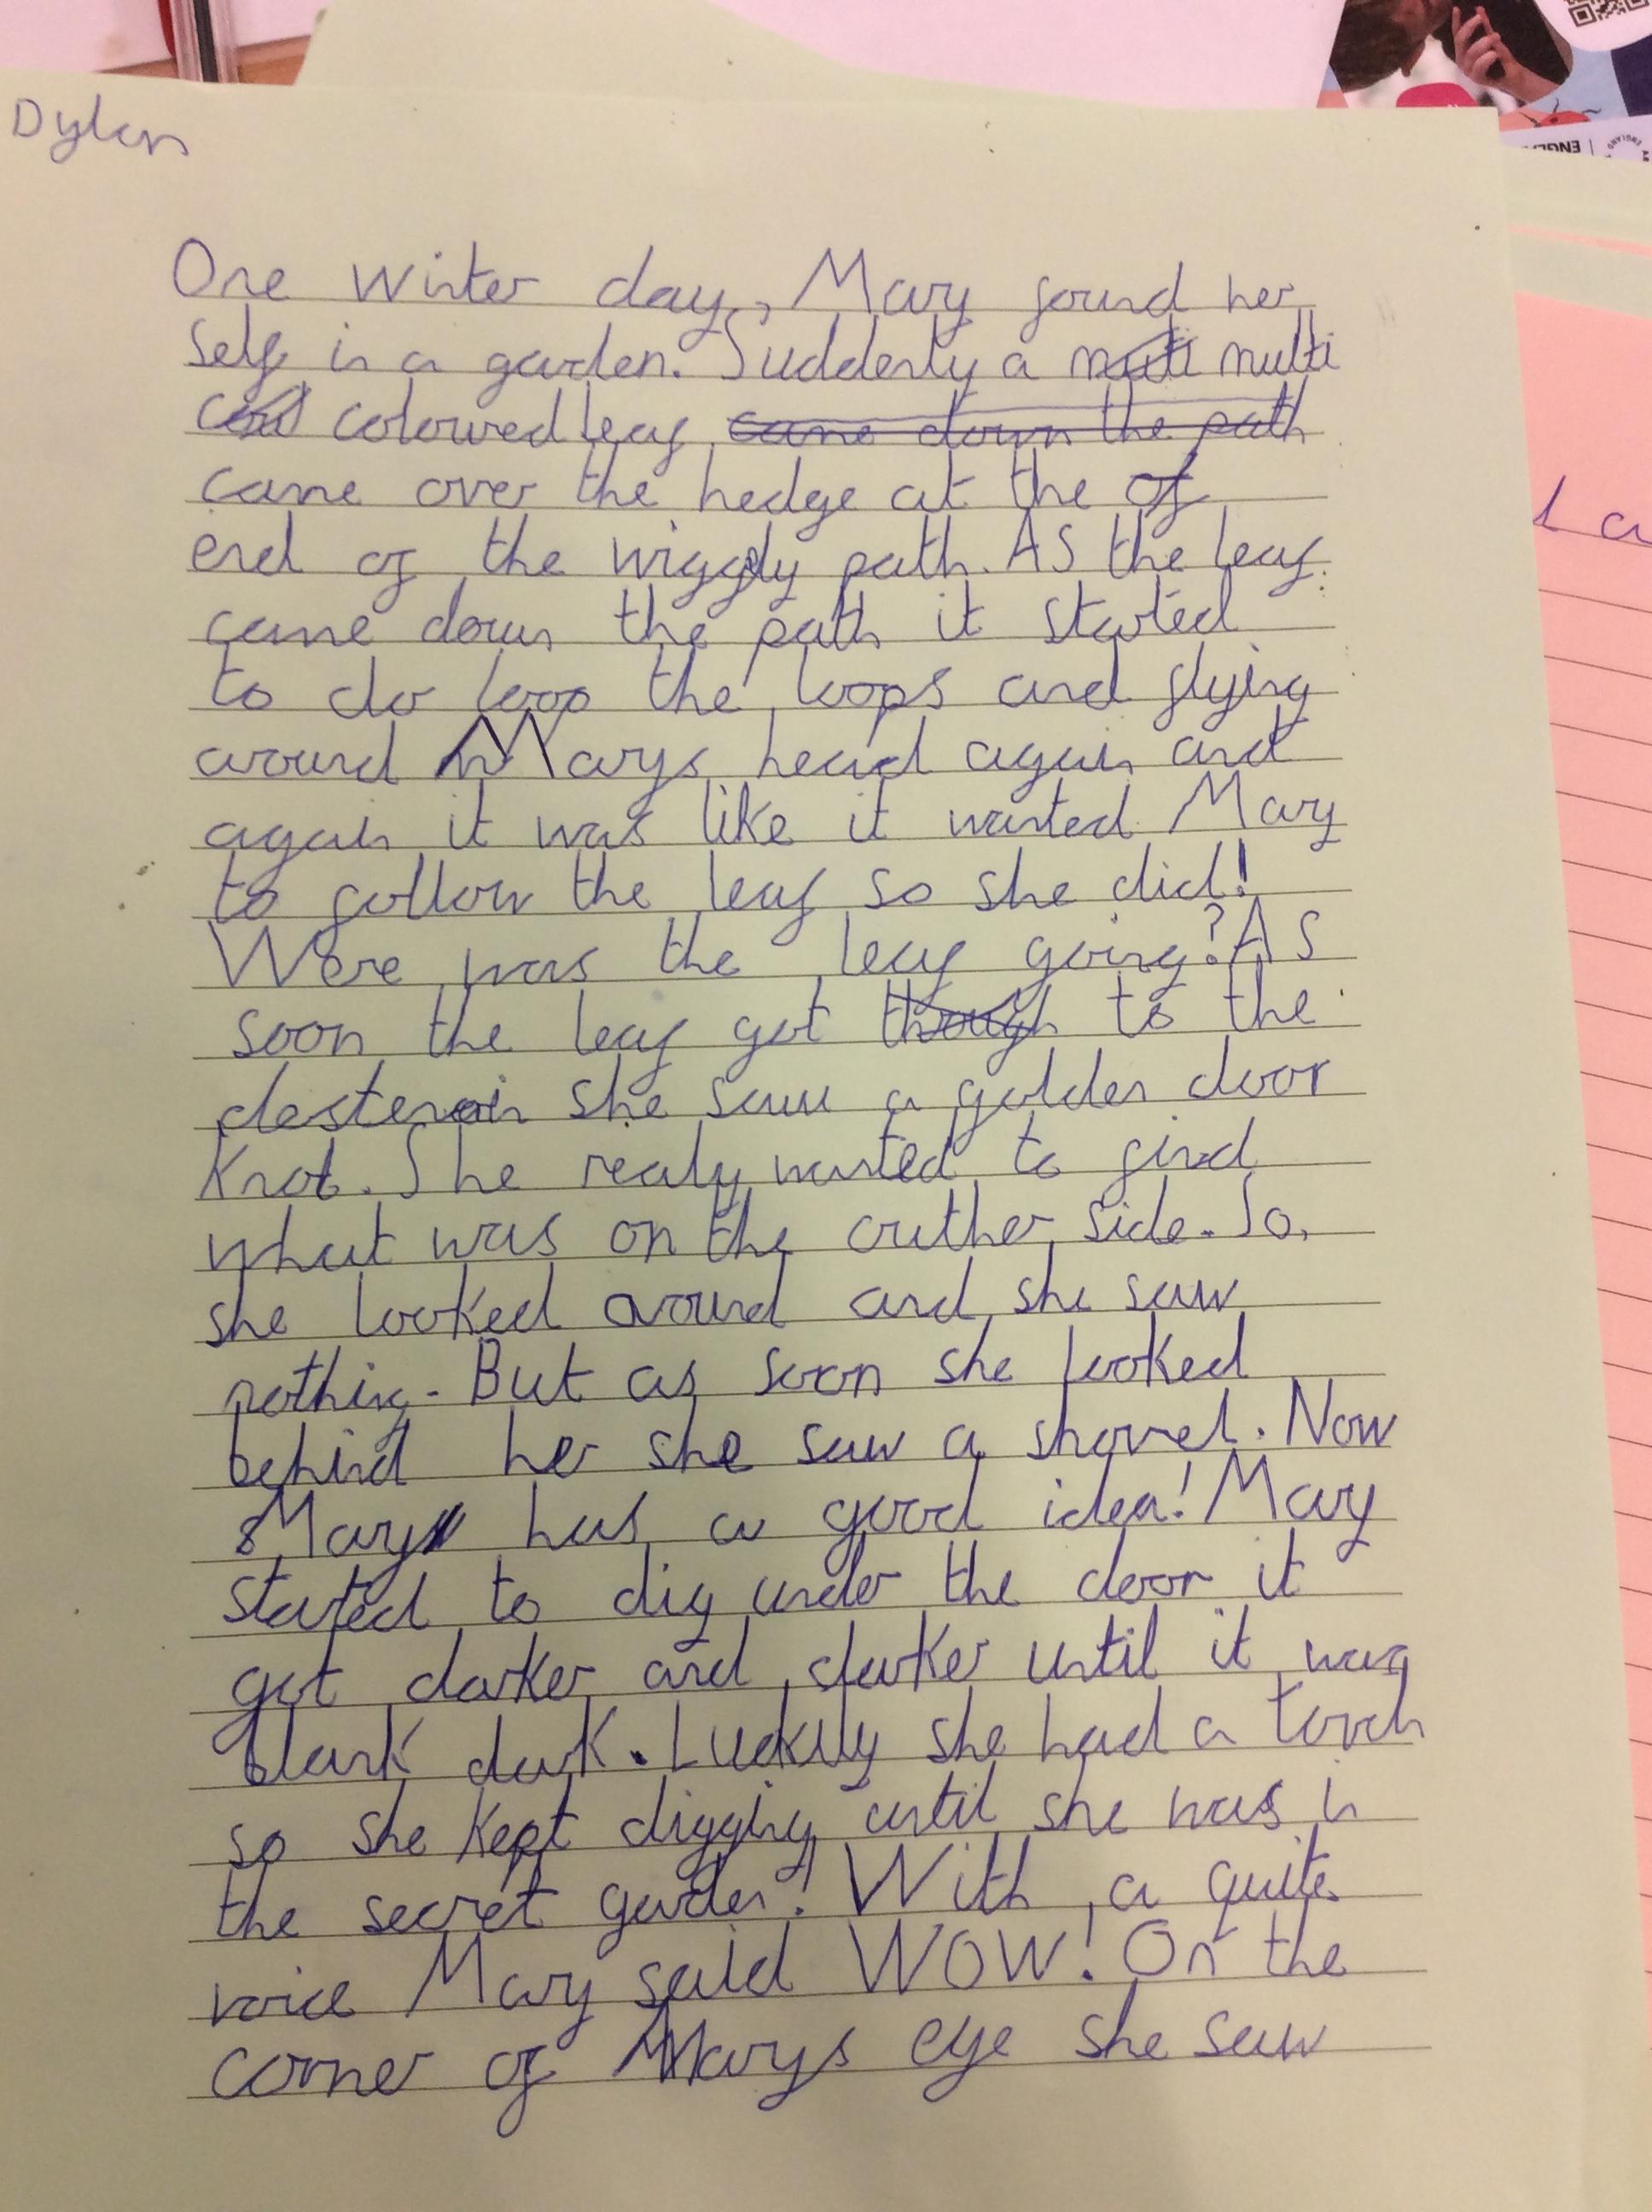 Dylan
One winter day, Mary found her
self in a garden. Suddenly a multi
coloured leaf came down the path
came over the hedge at the of
end of the wiggly path. As the leaf
came down the path it started
to do loop the loops and flying
around Marys head again and
again it was like it wanted Mary
to follow the leaf so she did!
Were was the leaf going? As
soon the leaf got though to the
she saw a golden door
Knot. She realy wanted to find
what was on the outher side. So,
she looked around and she saw
nothing. But as soon she looked
behind her she saw a shovel. Now
Mary has a good idea! Mary
started to dig under the door it
got darker and darker until it was
blank dark. Luckily she had a torch
so she kept digging until she was in
the secret garden! With a quite
voice Mary said WOW! On the
corner of Marys eye she saw